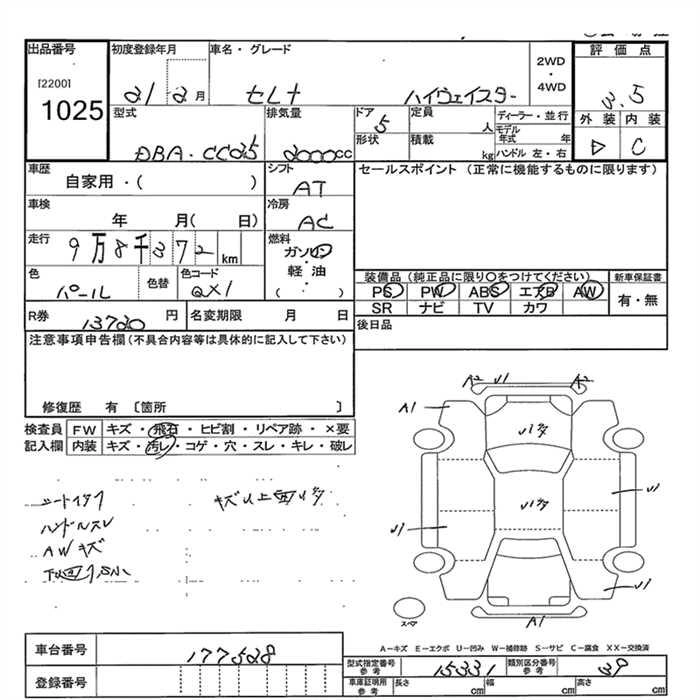 出品番号 初度登録年月 車名・グレード 2WD・4WD 評価点
[2200]
1025
21 2月 セレナ ハイウェイスター 3.5
型式 排気量 ドア 5 定員 人 ディーラー・並行 外装 内装
形状 積載 kg モデル年式 年 ハンドル 左・右 C
DBA-CC25 2000cc
車歴 シフト セールスポイント (正常に機能するものに限ります)
自家用・( ) AT
車検 冷房
年 月( 日) AC
走行 燃料
9万8千372 km ガソリン・軽油・( )
色 色替 色コード 装備品 (純正品に限り○をつけてください) 新車保証書
パール QX1 PS PW ABS エアB AW 有・無
SR ナビ TV カワ
R券 13720円 名変期限 月 日 後日品
注意事項申告欄(不具合内容等は具体的に記入して下さい)
修復歴 有 〔箇所 〕
検査員 FW キズ・飛石・ヒビ割・リペア跡・×要
記入欄 内装 キズ・汚レ・コゲ・穴・スレ・キレ・破レ
シートイタミ キズ
ハンドルスレ
AWキズ
A2 U1 A2
A1
U1
U1
U1
A1
A-キズ E-エクボ U-凹み W-補修跡 S-サビ C-腐食 XX-交換済
車台番号 177528
型式指定番号 参考 15331 類別区分番号 参考 39
登録番号 車庫証明用 参考 長さ cm 幅 cm 高さ cm